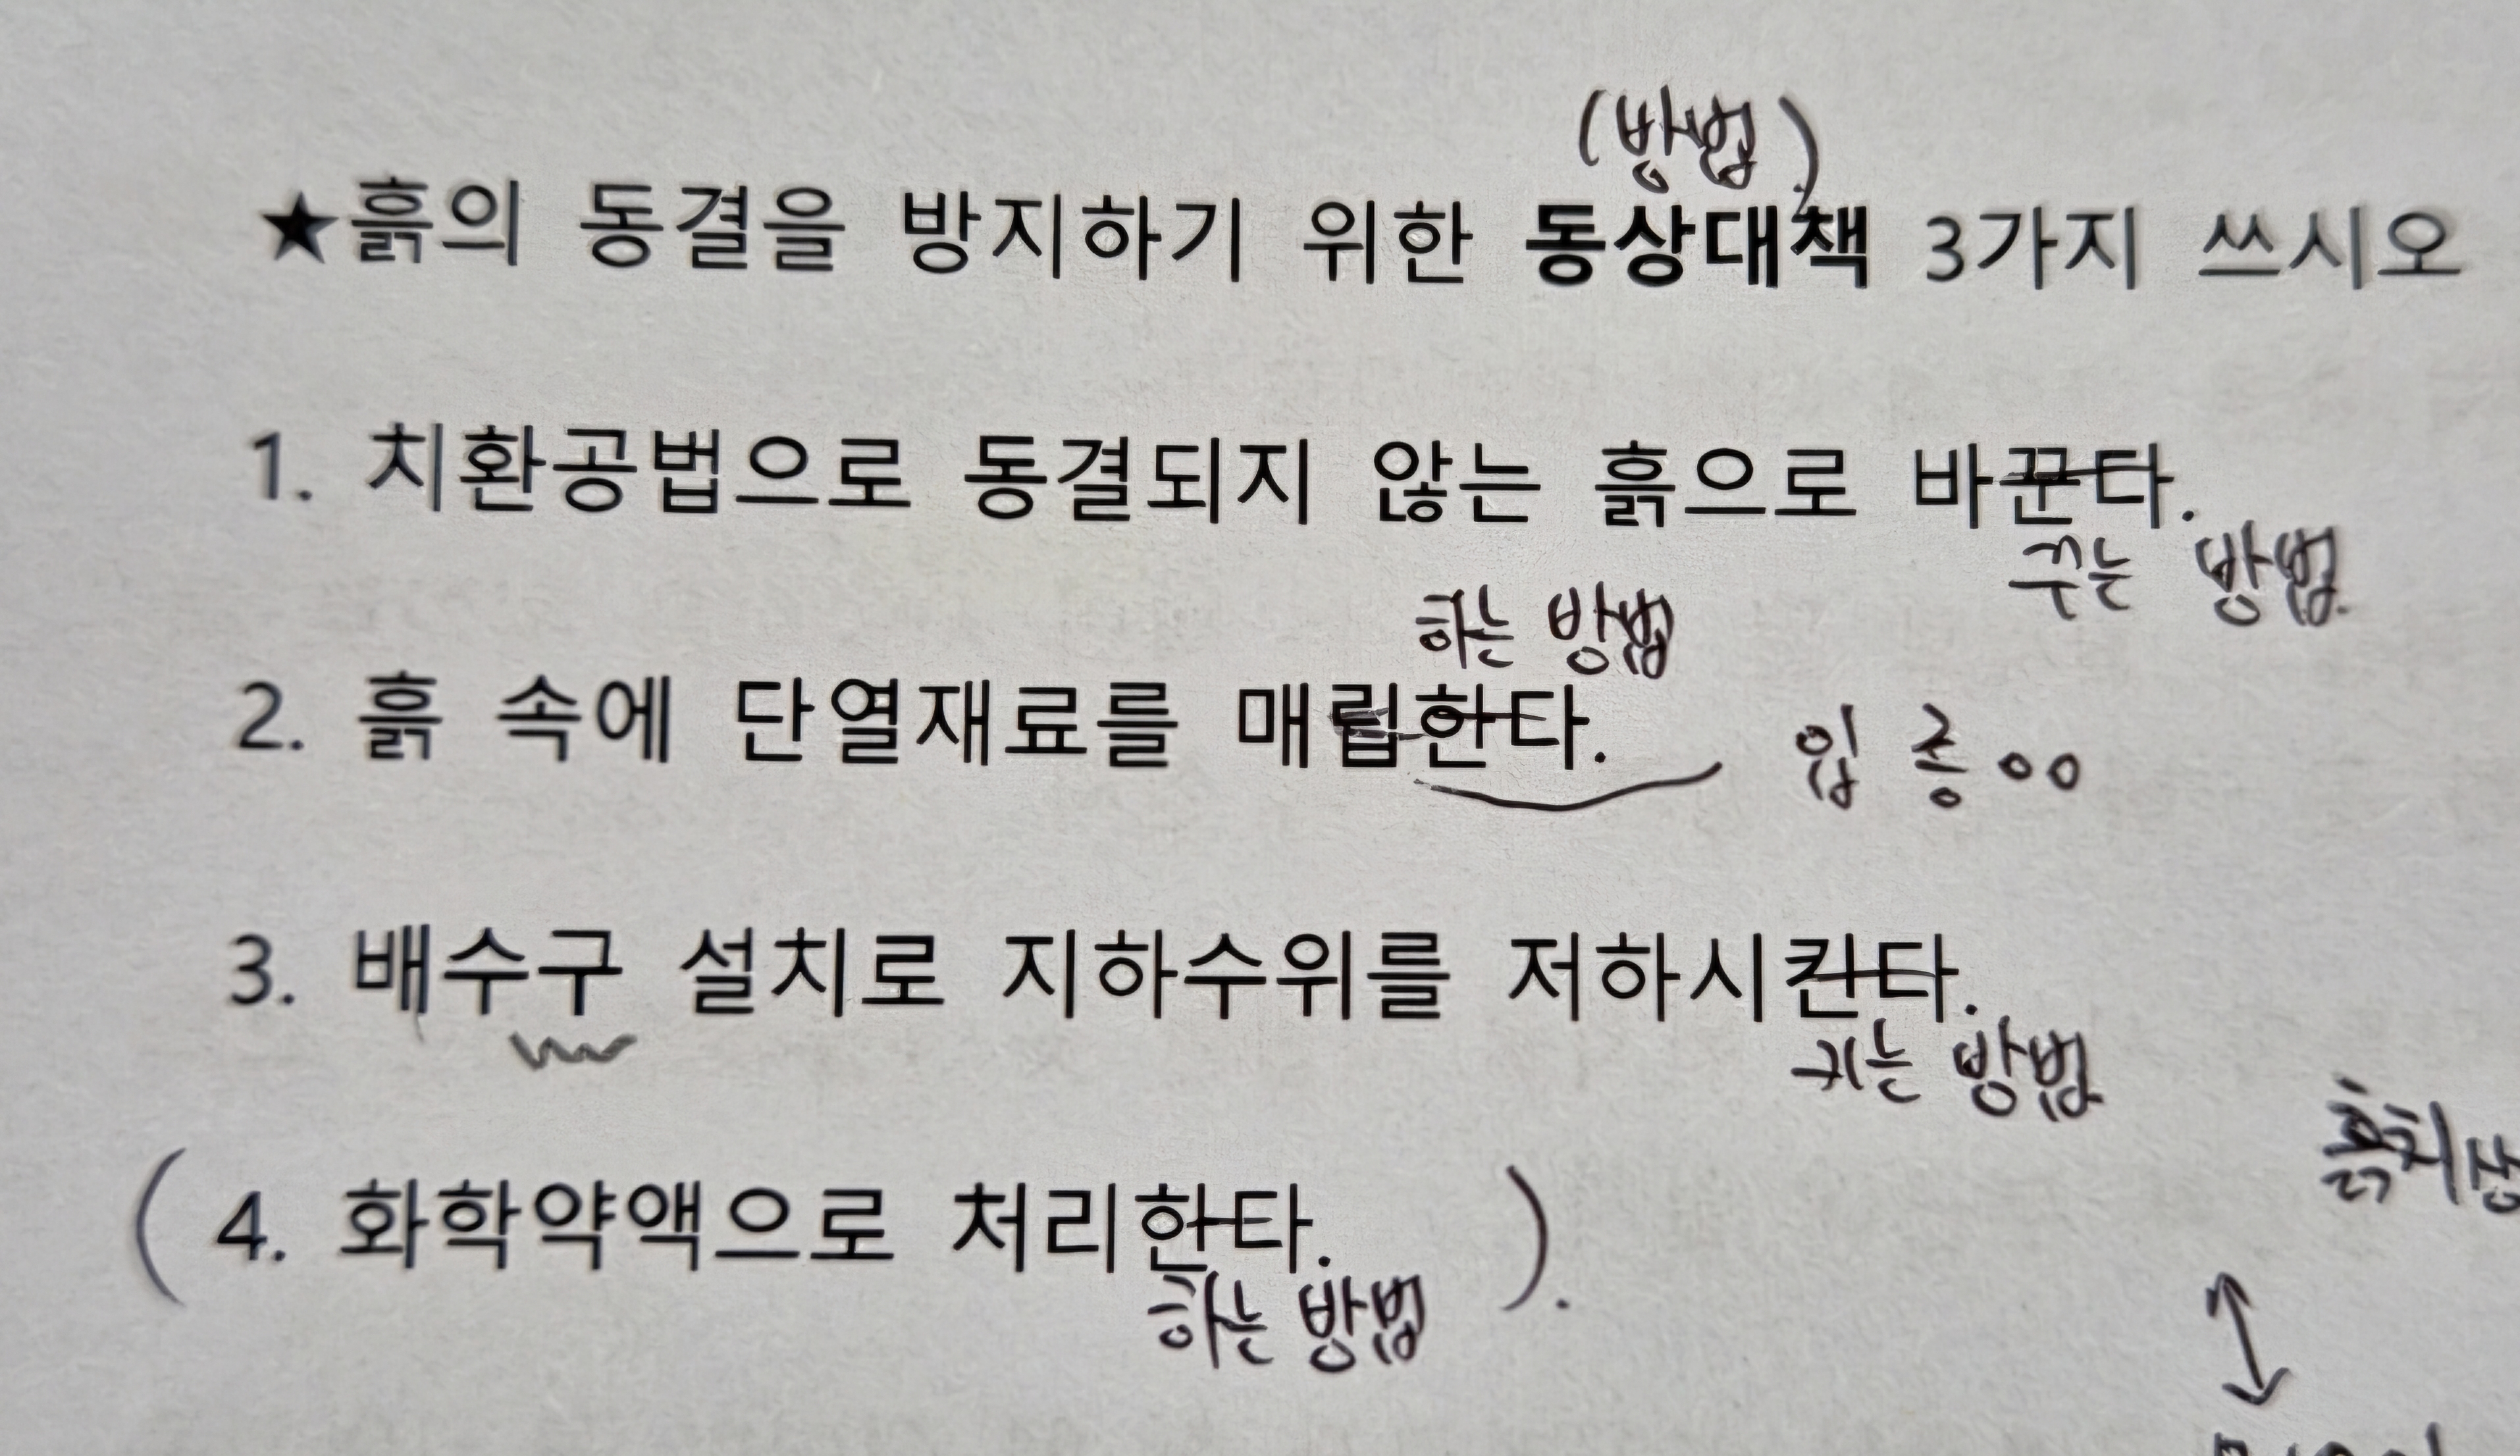 (방법)
★흙의 동결을 방지하기 위한 동상대책 3가지 쓰시오
1. 치환공법으로 동결되지 않는 흙으로 바꾼다.
꾸는 방법.
하는 방법
2. 흙 속에 단열재료를 매립한다.
3. 배수구 설치로 지하수위를 저하시킨다.
키는 방법
(4. 화학약액으로 처리한다. ).
하는 방법